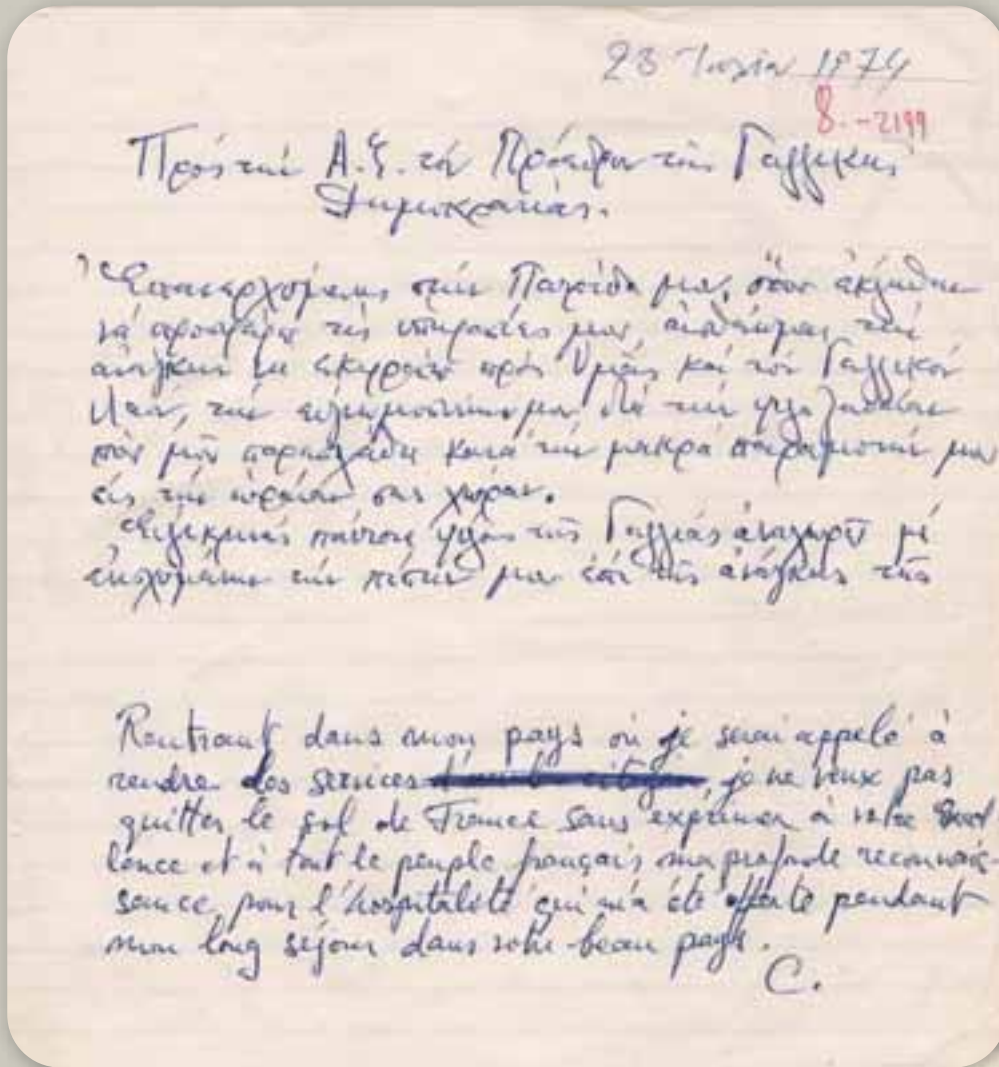 23 Ἰουλίου 1974
8.-2199
Πρός τήν Α.Ε. τόν Πρόεδρον τῆς Γαλλικῆς
Δημοκρατίας.
Ἐπανερχόμενος στήν Πατρίδα μου, ὅπου ἐκλήθην
νά προσφέρω τίς ὑπηρεσίες μου, αἰσθάνομαι τήν
ἀνάγκην νά ἐκφράσω πρός Ὑμᾶς καί τόν Γαλλικόν
Λαόν, τήν εὐγνωμοσύνην μου διά τήν φιλοξενίαν
πού μοῦ παρεσχέθη κατά τήν μακρά παραμονήν μου
εἰς τήν ὡραίαν σας χώραν.
Εἰλικρινής πάντοτε φίλος τῆς Γαλλίας ἀναχωρῶ μέ
ἐνισχυμένην τήν πίστιν μου ἐπί τῆς ἀνάγκης τῆς
Rentrant dans mon pays où je serai appelé à
rendre des services, je ne veux pas
quitter le sol de France sans exprimer à votre Excel
lence et à tout le peuple français ma profonde reconnais-
sance pour l'hospitalité qui m'a été offerte pendant
mon long séjour dans votre beau pays.
C.